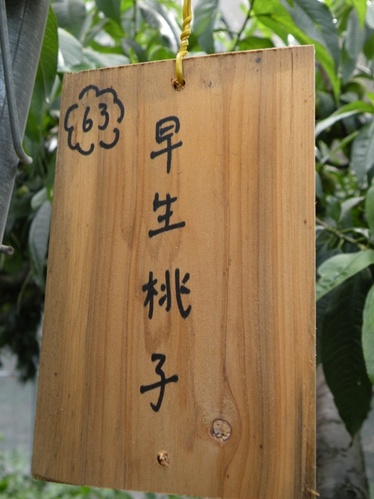 63
早生桃子